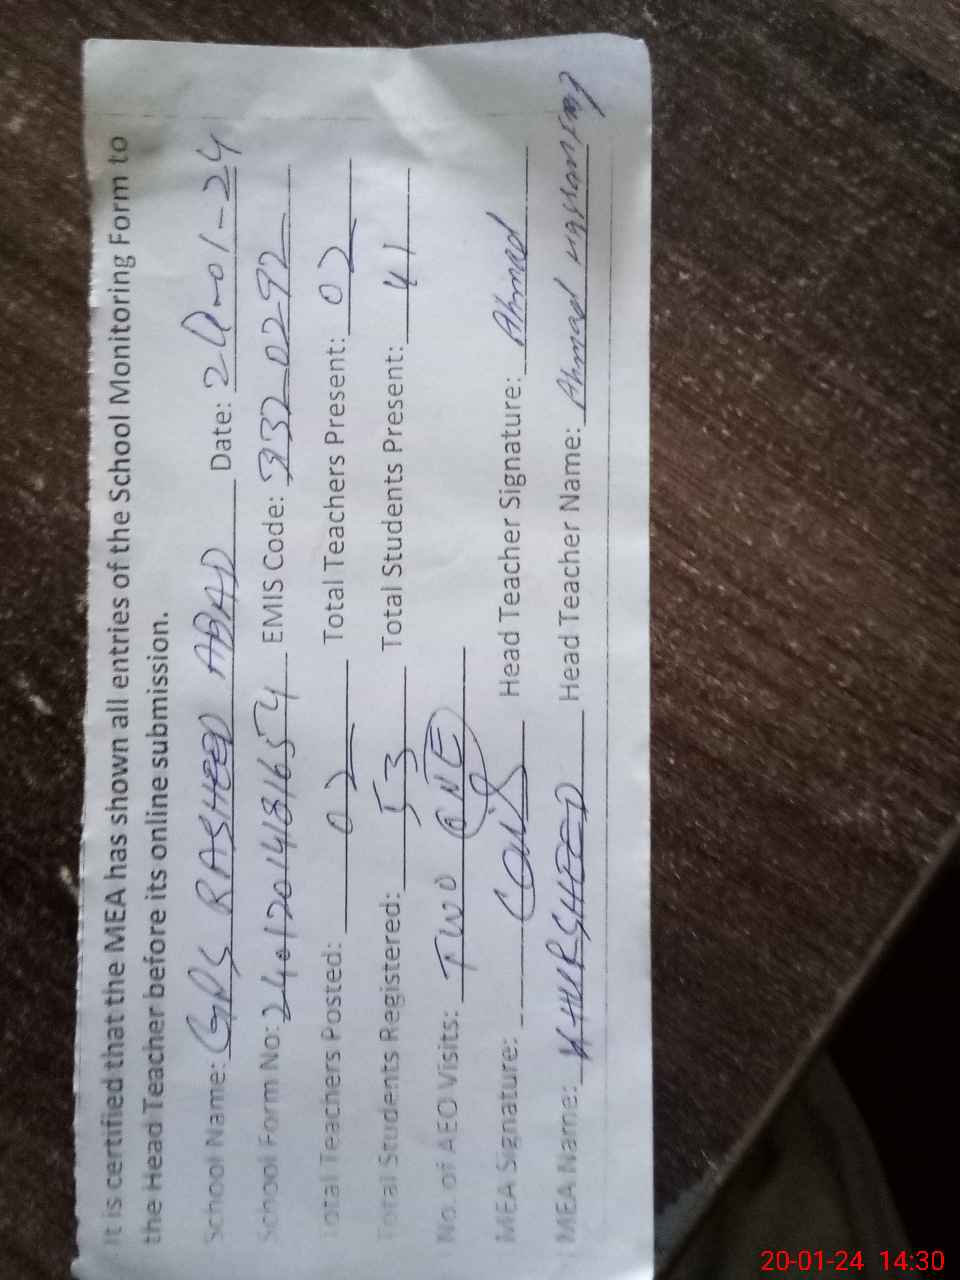 It is certified that the MEA has shown all entries of the School Monitoring Form to
the Head Teacher before its online submission.
School Name: GPS RASHEED ABAD Date: 20-01-24
School Form No: 2401201418161654 EMIS Code: 332-02-92
Total Teachers Posted: 02 Total Teachers Present: 02
Total Students Registered: 53 Total Students Present: 41
No. of AEO Visits: TWO ONE
MEA Signature: Head Teacher Signature: Ahmad
MEA Name: KHURSHEED Head Teacher Name: Ahmad
20-01-24 14:30